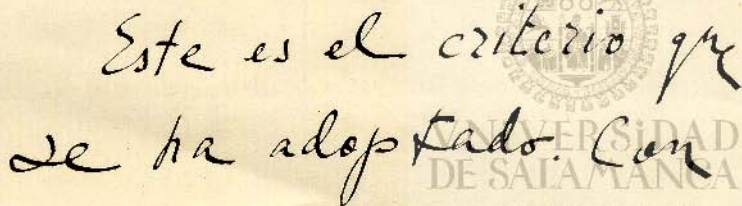 Este es el criterio que
se ha adoptado. Con
VNiVERSiDAD
DE SALAMANCA